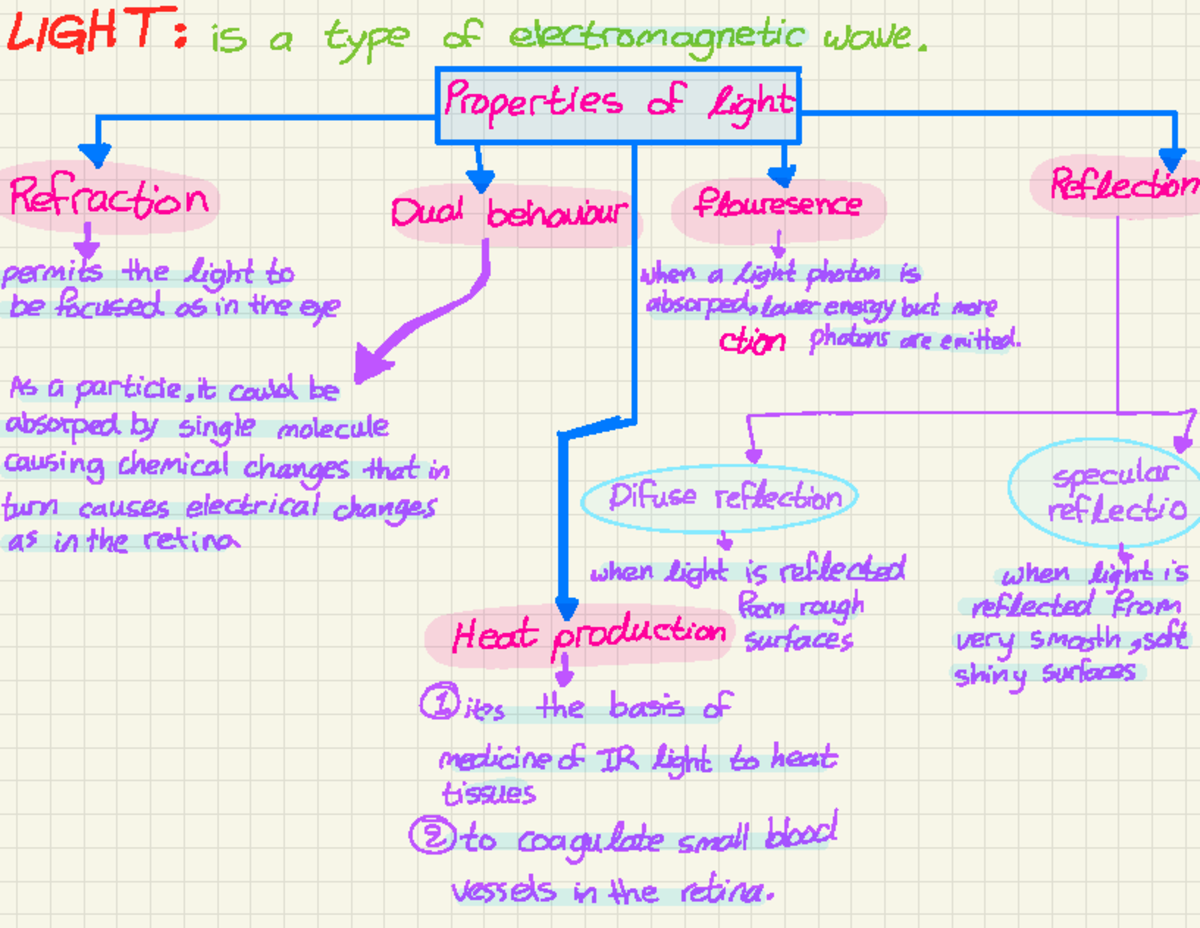 LIGHT: is a type of electromagnetic wave.
Properties of light
Refraction
permits the light to
be focused as in the eye
Dual behaviour
As a particle, it could be
absorped by single molecule
causing chemical changes that in
turn causes electrical changes
as in the retina
flouresence
when a light photon is
absorped, lower energy but more
ction photons are emitted.
Reflection
Difuse reflection
when light is reflected
from rough
surfaces
specular
reflectio
when light is
reflected from
very smooth, soft
shiny surfaces
Heat production
① its the basis of
medicine of IR light to heat
tissues
② to coagulate small blood
vessels in the retina.